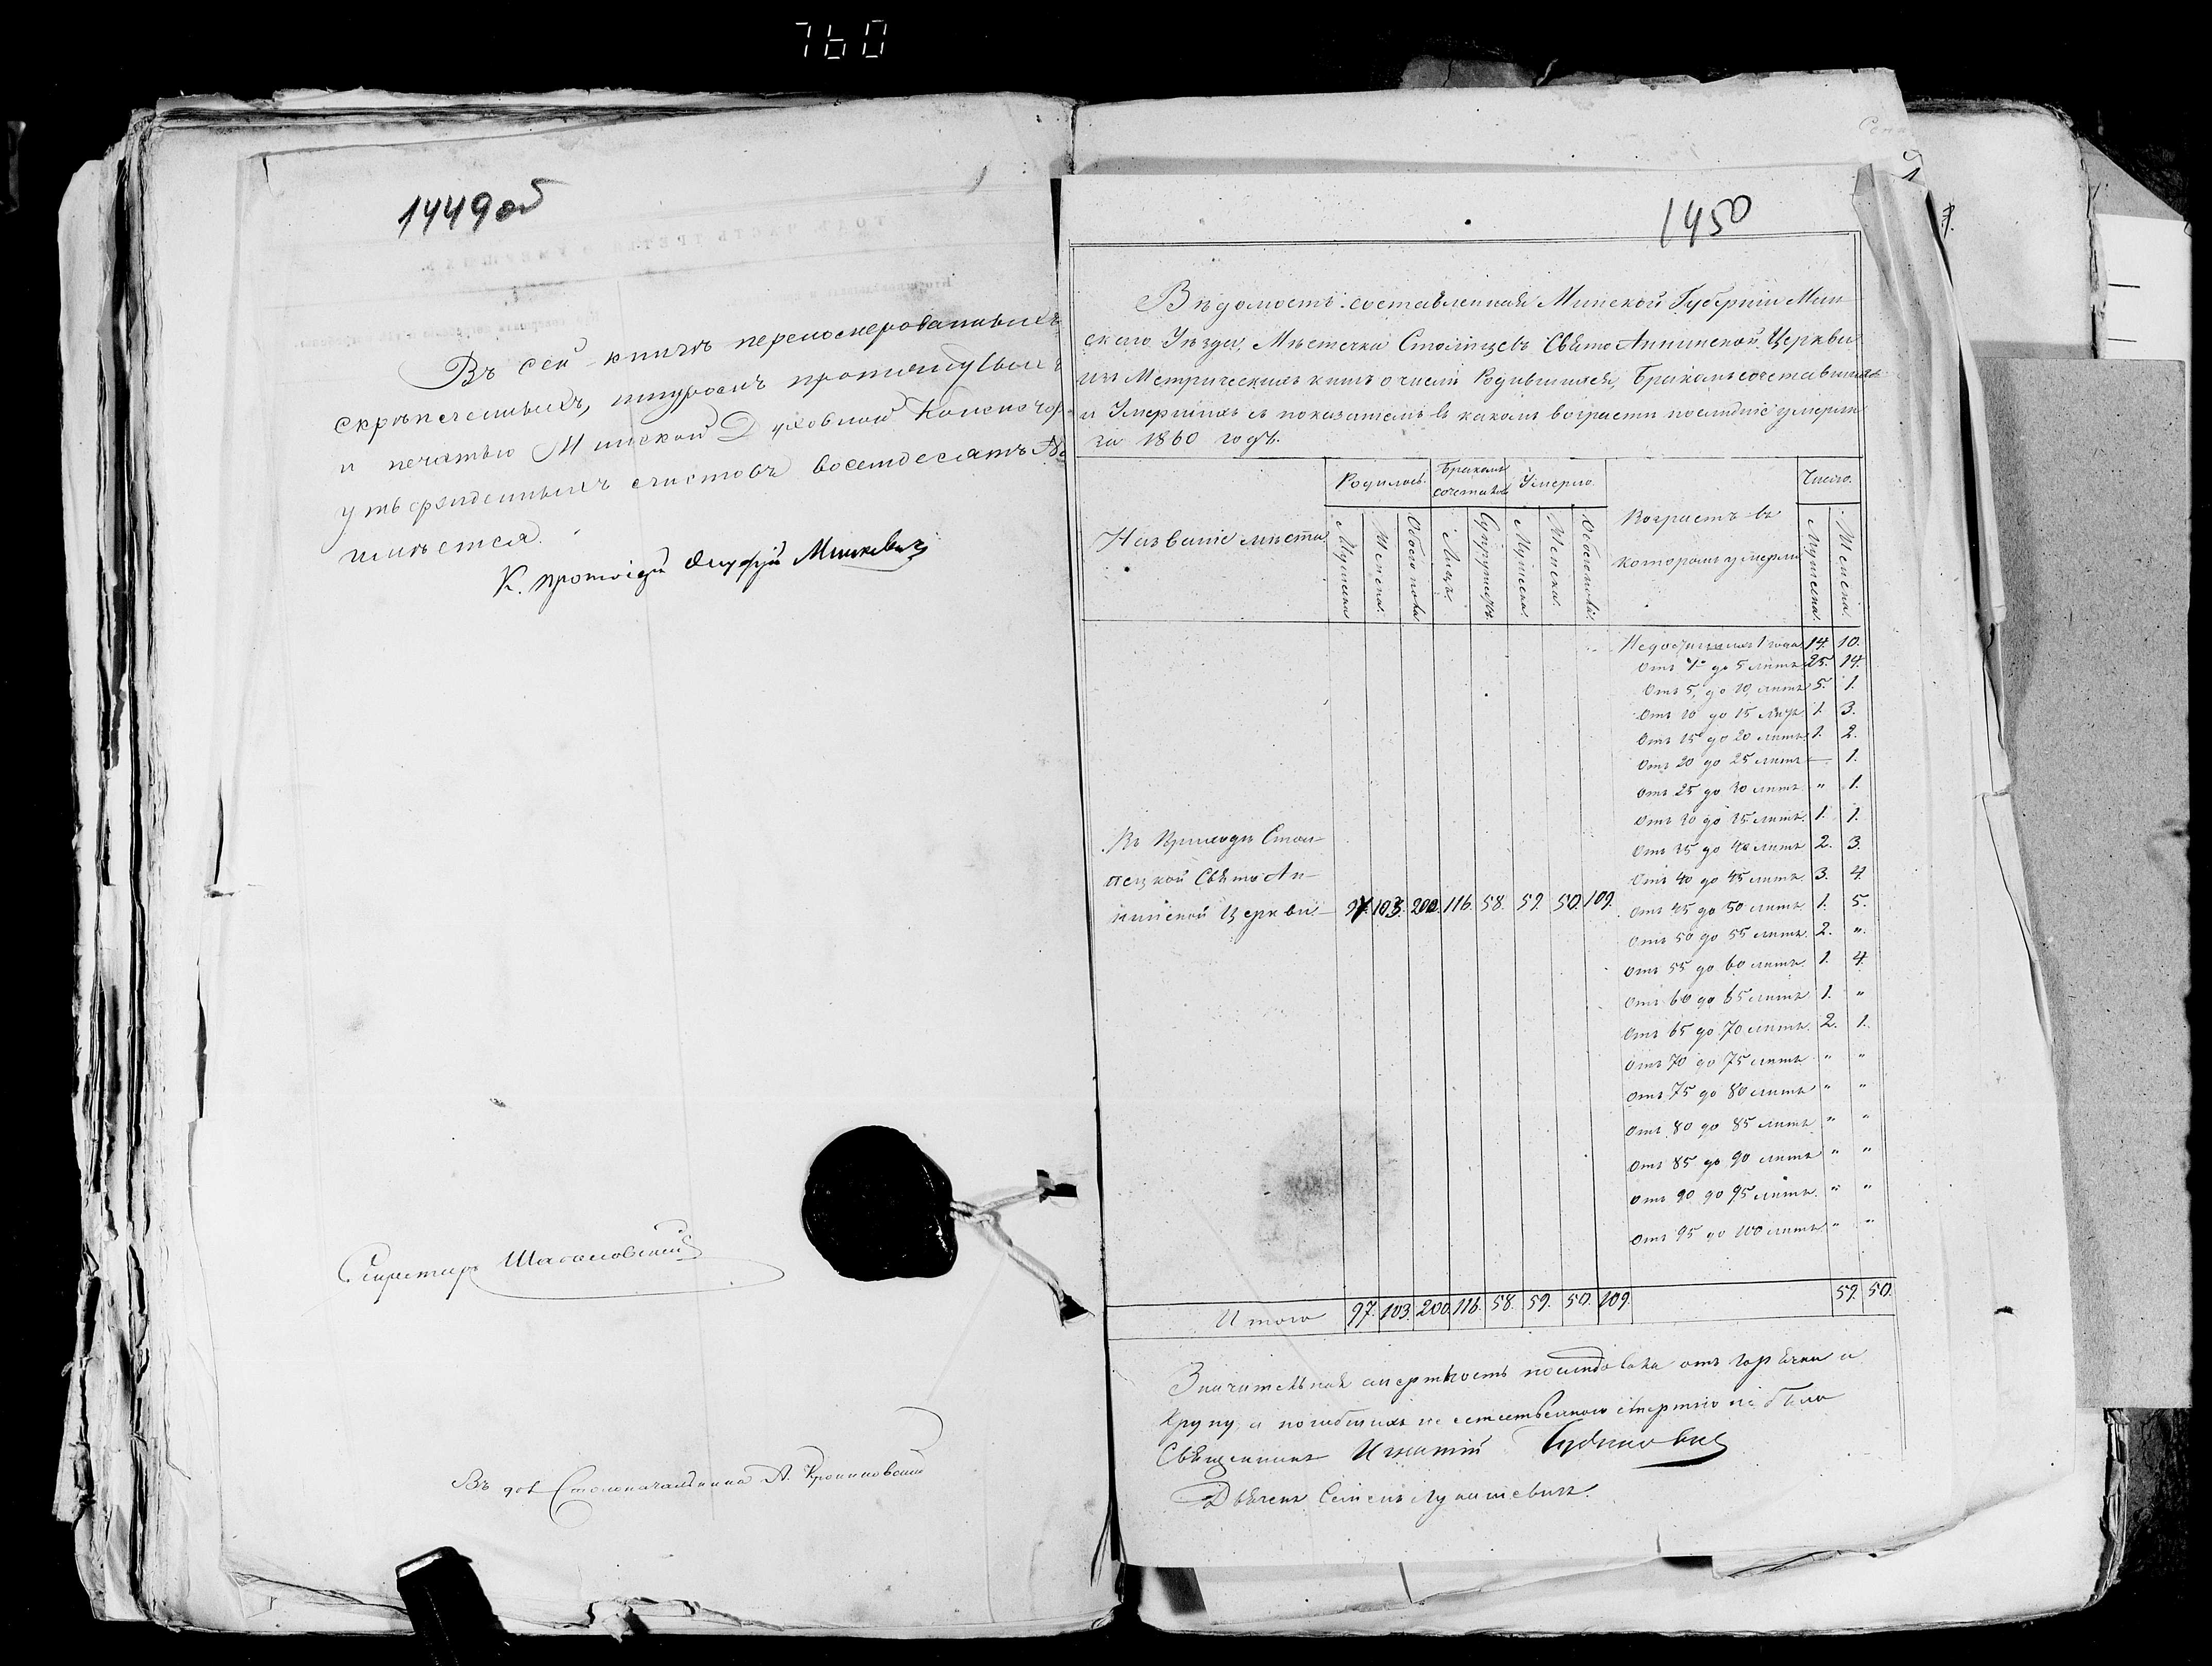 760
1449 об
Въ сей книгѣ перенумерованныхъ
скрѣпленныхъ, шнуромъ
и печатью Минской Духовной Консисто
утвержденныхъ листовъ восемдесятъ
имѣется.
К. Протоіерей Минкевичъ
Секретарь
Въ дол. Столоначальника А.
1450
Вѣдомость составленная Минской Губерніи Мин
скаго Уѣзда, Мѣстечка Столпцевъ Свято Аннинской Церкви
изъ Метрическихъ книгъ о числѣ Родившихся, Бракомъ сочетавшихся
и Умершихъ съ показаніемъ въ какомъ возрастѣ послѣдніе умерли
за 1860 годъ.
Названіе мѣста
Родилось.
Бракомъ сочетались
Умерло.
Возрастъ въ которомъ умерли
Число.
Мужеска
Женска.
Обоего пола
Лицъ.
Супружествъ.
Мужеска.
Женска.
Обоего пола.
Мужеска.
Женска.
Недостигшихъ 1 года 14. 10.
Отъ 1го до 5 лѣтъ 25. 14.
Отъ 5, до 10, лѣтъ 5. 1.
Отъ 10 до 15 лѣтъ 1. 3.
Отъ 15 до 20 лѣтъ 1. 2.
Отъ 20 до 25 лѣтъ — 1.
Отъ 25 до 30 лѣтъ " 1.
Отъ 30 до 35 лѣтъ. 1. 1.
Отъ 35 до 40 лѣтъ 2. 3.
Отъ 40 до 45 лѣтъ 3. 4.
Отъ 45 до 50 лѣтъ 1. 5.
Отъ 50 до 55 лѣтъ. 2. "
Отъ 55 до 60 лѣтъ 1. 4.
Отъ 60 до 65 лѣтъ 1. "
Отъ 65 до 70 лѣтъ. 2. 1.
Отъ 70 до 75 лѣтъ " "
Отъ 75 до 80 лѣтъ " "
Отъ 80 до 85 лѣтъ " "
Отъ 85 до 90 лѣтъ " "
Отъ 90 до 95 лѣтъ. " "
Отъ 95 до 100 лѣтъ " "
Въ Приходѣ Стол-
пецкой Свято Ан-
нинской Церкви — 97. 103. 200. 116. 58. 59. 50. 109.
Итого 97. 103. 200. 116. 58. 59. 50. 109. 59. 50.
Значительная смертность послѣдовала отъ горячки и
Крупу, а погибшихъ не естественною смертію не было
Священникъ Игнатій
Дьячекъ Семенъ Лукашевичъ.